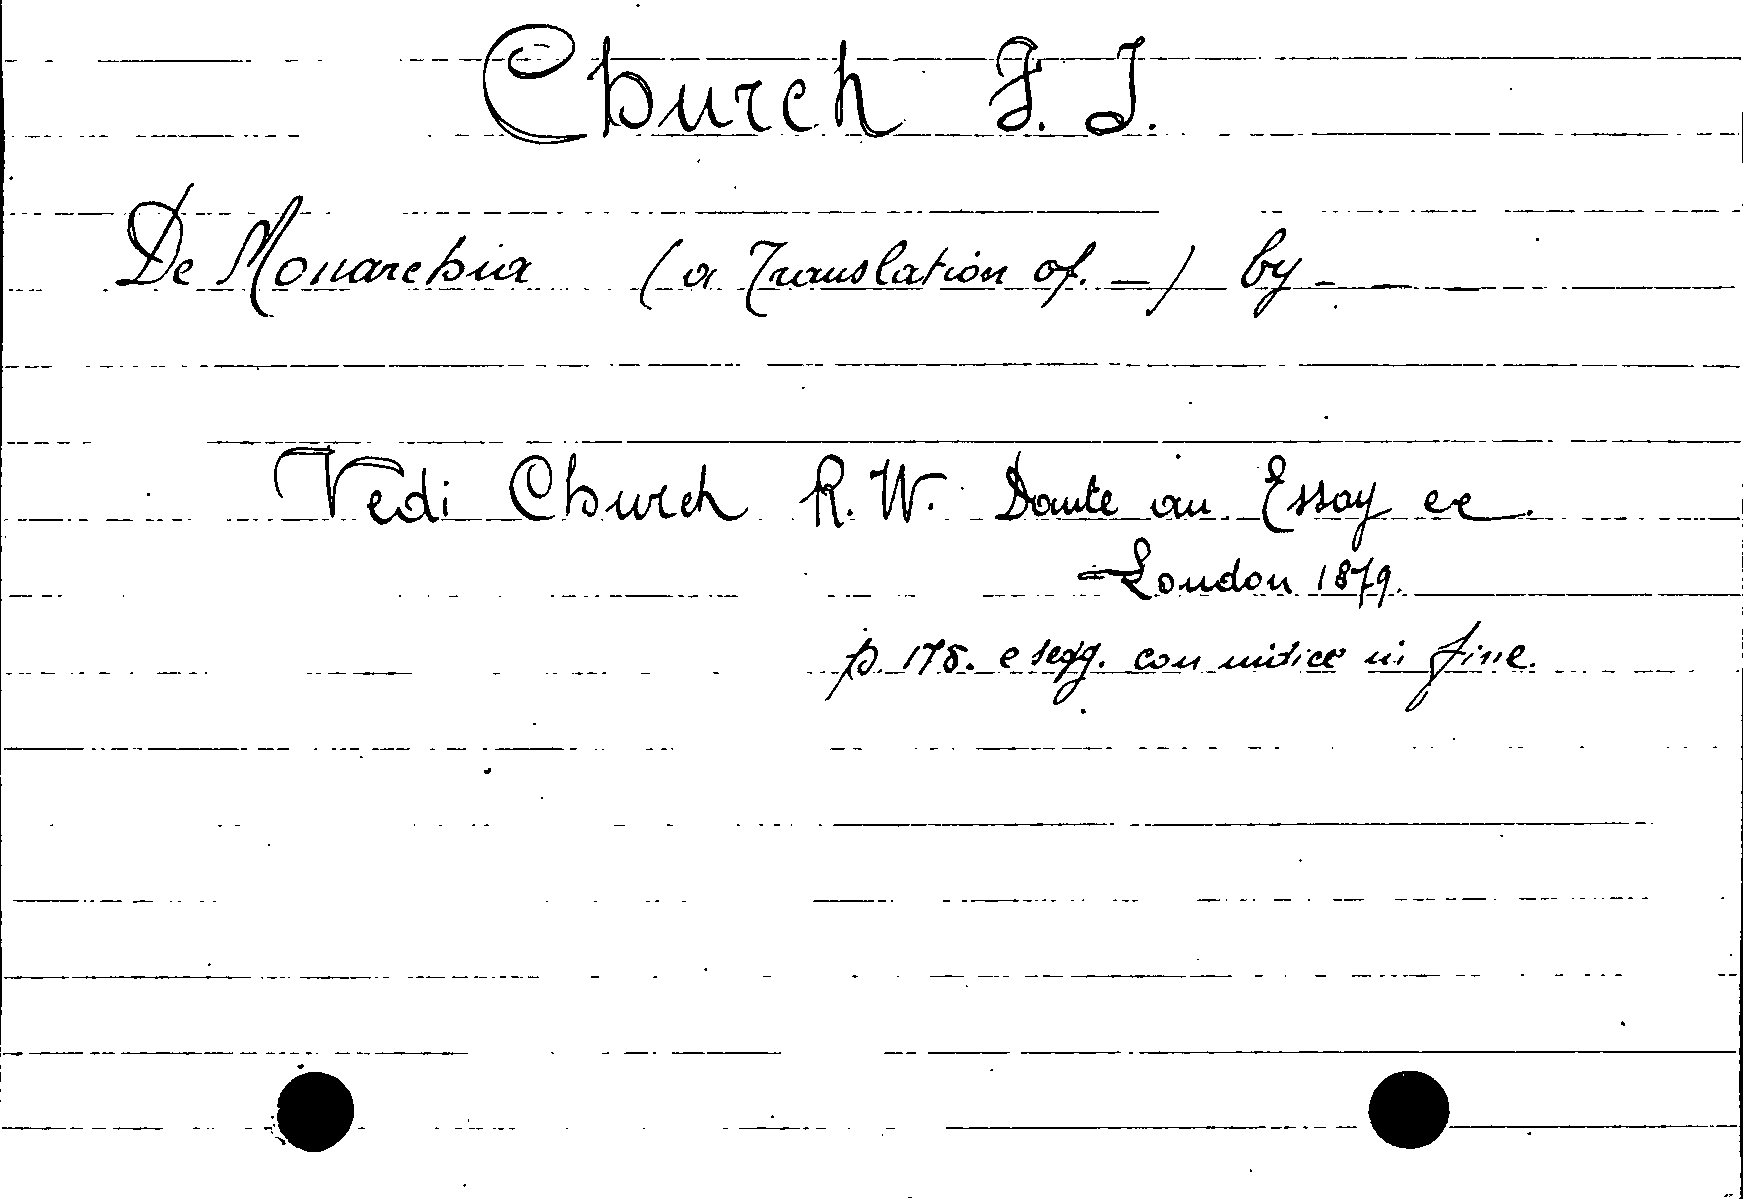 Church F. J.
De Monarchia (a Translation of. _) by - _ _
Vedi Church R. W. Dante an Essay ec.
London 1879.
p. 175. e segg. con indice in fine.